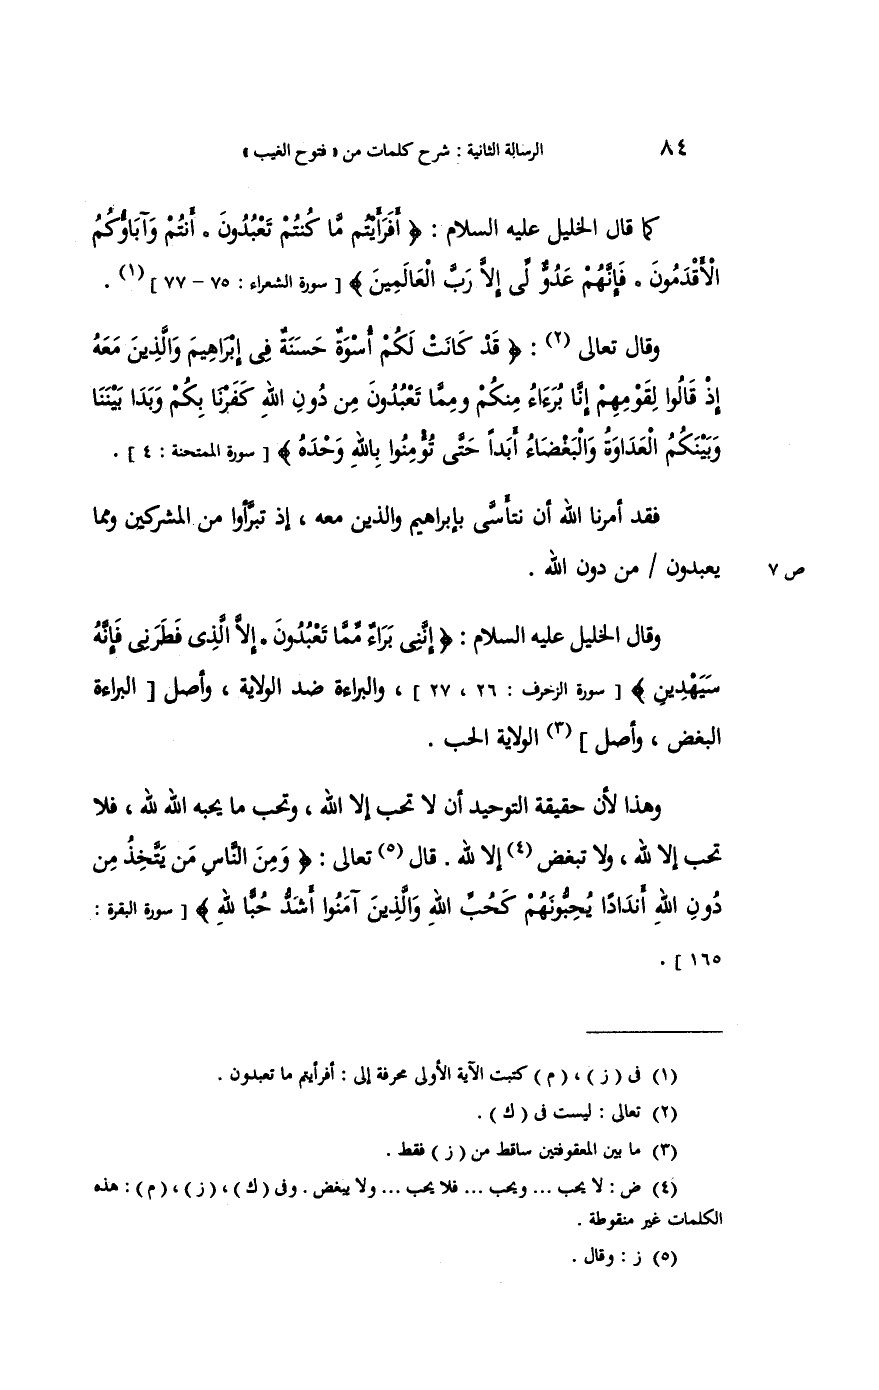 ٨٤ الرسالة الثانية : شرح كلمات من « فتوح الغيب »
كما قال الخليل عليه السلام : ﴿ أَفَرَأَيْتُم مَّا كُنتُمْ تَعْبُدُونَ . أَنتُمْ وَآبَاؤُكُمُ
الْأَقْدَمُونَ . فَإِنَّهُمْ عَدُوٌّ لِّى إِلاَّ رَبَّ الْعَالَمِينَ ﴾ [ سورة الشعراء : ٧٥ – ٧٧ ] (١) .
وقال تعالى (٢) : ﴿ قَدْ كَانَتْ لَكُمْ أُسْوَةٌ حَسَنَةٌ فِى إِبْرَاهِيمَ وَالَّذِينَ مَعَهُ
إِذْ قَالُوا لِقَوْمِهِمْ إِنَّا بُرَءَاءُ مِنكُمْ ومِمَّا تَعْبُدُونَ مِن دُونِ اللهِ كَفَرْنَا بِكُمْ وَبَدَا بَيْنَنَا
وَبَيْنَكُمُ الْعَدَاوَةُ وَالْبَغْضَاءُ أَبَداً حَتَّى تُؤْمِنُوا بِاللهِ وَحْدَهُ ﴾ [ سورة الممتحنة : ٤ ] .
فقد أمرنا الله أن نتأسَّى بإبراهيم والذين معه ، إذ تبرَّأوا من المشركين ومما
يعبدون / من دون الله . ص ٧
وقال الخليل عليه السلام : ﴿ إِنَّنِى بَرَاءٌ مِّمَّا تَعْبُدُونَ . إِلاَّ الَّذِى فَطَرَنِى فَإِنَّهُ
سَيَهْدِينِ ﴾ [ سورة الزخرف : ٢٦ ، ٢٧ ] ، والبراءة ضد الولاية ، وأصل [ البراءة
البغض ، وأصل ] (٣) الولاية الحب .
وهذا لأن حقيقة التوحيد أن لا تحب إلا الله ، وتحب ما يحبه الله لله ، فلا
تحب إلا لله ، ولا تبغض (٤) إلا لله . قال (٥) تعالى : ﴿ وَمِنَ النَّاسِ مَن يَتَّخِذُ مِن
دُونِ اللهِ أَندَادًا يُحِبُّونَهُمْ كَحُبِّ اللهِ وَالَّذِينَ آمَنُوا أَشَدُّ حُبًّا لله ﴾ [ سورة البقرة :
١٦٥ ] .
(١) فى ( ز ) ، ( م ) كتبت الآية الأولى محرفة إلى : أفرأيتم ما تعبدون .
(٢) تعالى : ليست فى ( ك ) .
(٣) ما بين المعقوفتين ساقط من ( ز ) فقط .
(٤) ض : لا يحب ... ويحب ... فلا يحب ... ولا يبغض . وفى ( ك ) ، ( ز ) ، ( م ) : هذه
الكلمات غير منقوطة .
(٥) ز : وقال .